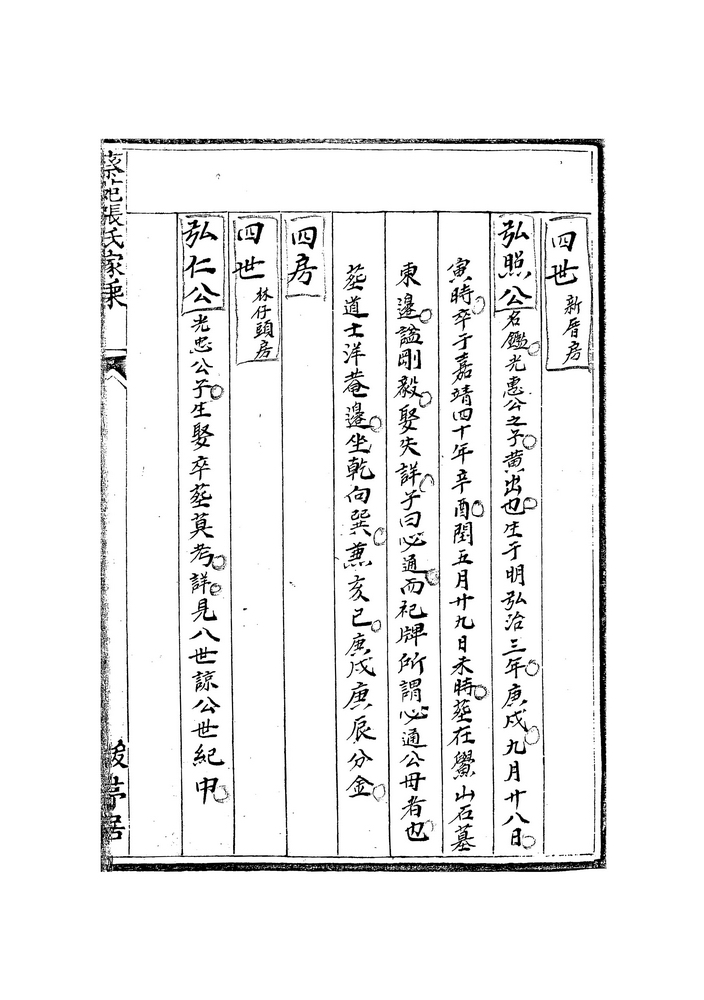 四世 新厝房
弘照公 名鑑光惠公之子黄出也生于明弘治三年庚戌九月廿八日
寅時卒于嘉靖四十年辛酉閏五月廿九日未時塟在鸞山石墓
東邉諡剛毅娶失詳子曰必通而祀牌所謂必通公母者也
塟道士洋菴邉坐乾向巽兼亥巳庚戍庚辰分金
四房
四世 林仔頭房
弘仁公 光忠公子生娶卒塟莫考詳見八世諒公世紀中
張氏家乘
亭居